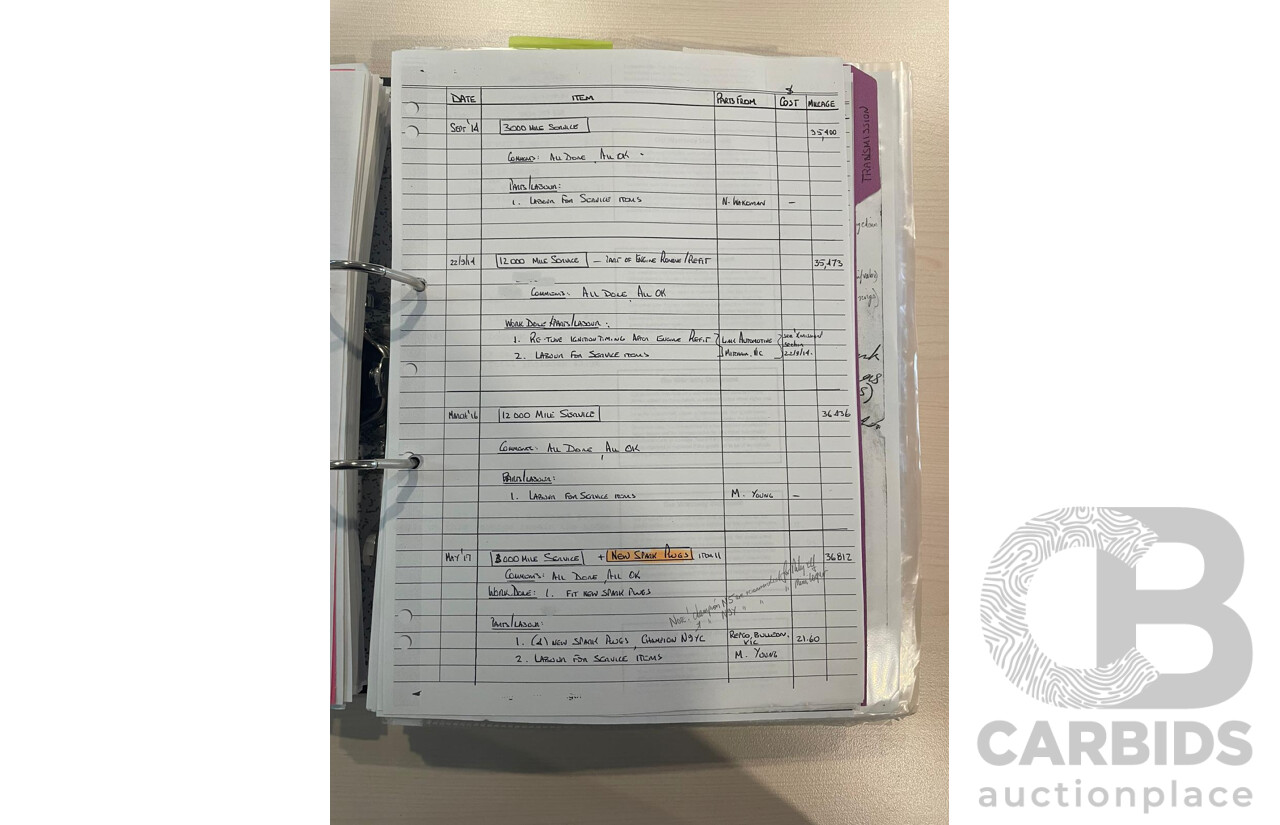 DATE ITEM PARTS FROM $ COST MILEAGE
SEPT '14 3000 MILE SERVICE 35,400
COMMENTS: ALL DONE, ALL OK
PARTS/LABOUR:
1. LABOUR FOR SERVICE ITEMS N. WAKEMAN –
22/9/14 12000 MILE SERVICE – PART OF ENGINE REMOVE/REFIT 35,473
COMMENTS: ALL DONE, ALL OK
WORK DONE/PARTS/LABOUR:
1. RE-TUNE IGNITION TIMING AFTER ENGINE REFIT AUTOMOTIVE see
2. LABOUR FOR SERVICE ITEMS MITCHAM, VIC section 22/9/14.
MARCH '16 12000 MILE SERVICE 36436
COMMENTS: ALL DONE, ALL OK
PARTS/LABOUR:
1. LABOUR FOR SERVICE ITEMS M. YOUNG –
MAY '17 3000 MILE SERVICE + NEW SPARK PLUGS ITEM 11 36812
COMMENTS: ALL DONE, ALL OK
WORK DONE: 1. FIT NEW SPARK PLUGS
Note: Champion N5 are recommended for
" N9Y " "
PARTS/LABOUR:
1. (4) NEW SPARK PLUGS, CHAMPION N9YC REPCO, BULLEEN, VIC 21.60
2. LABOUR FOR SERVICE ITEMS M. YOUNG
TRANSMISSION
CB
CARBIDS
auctionplace